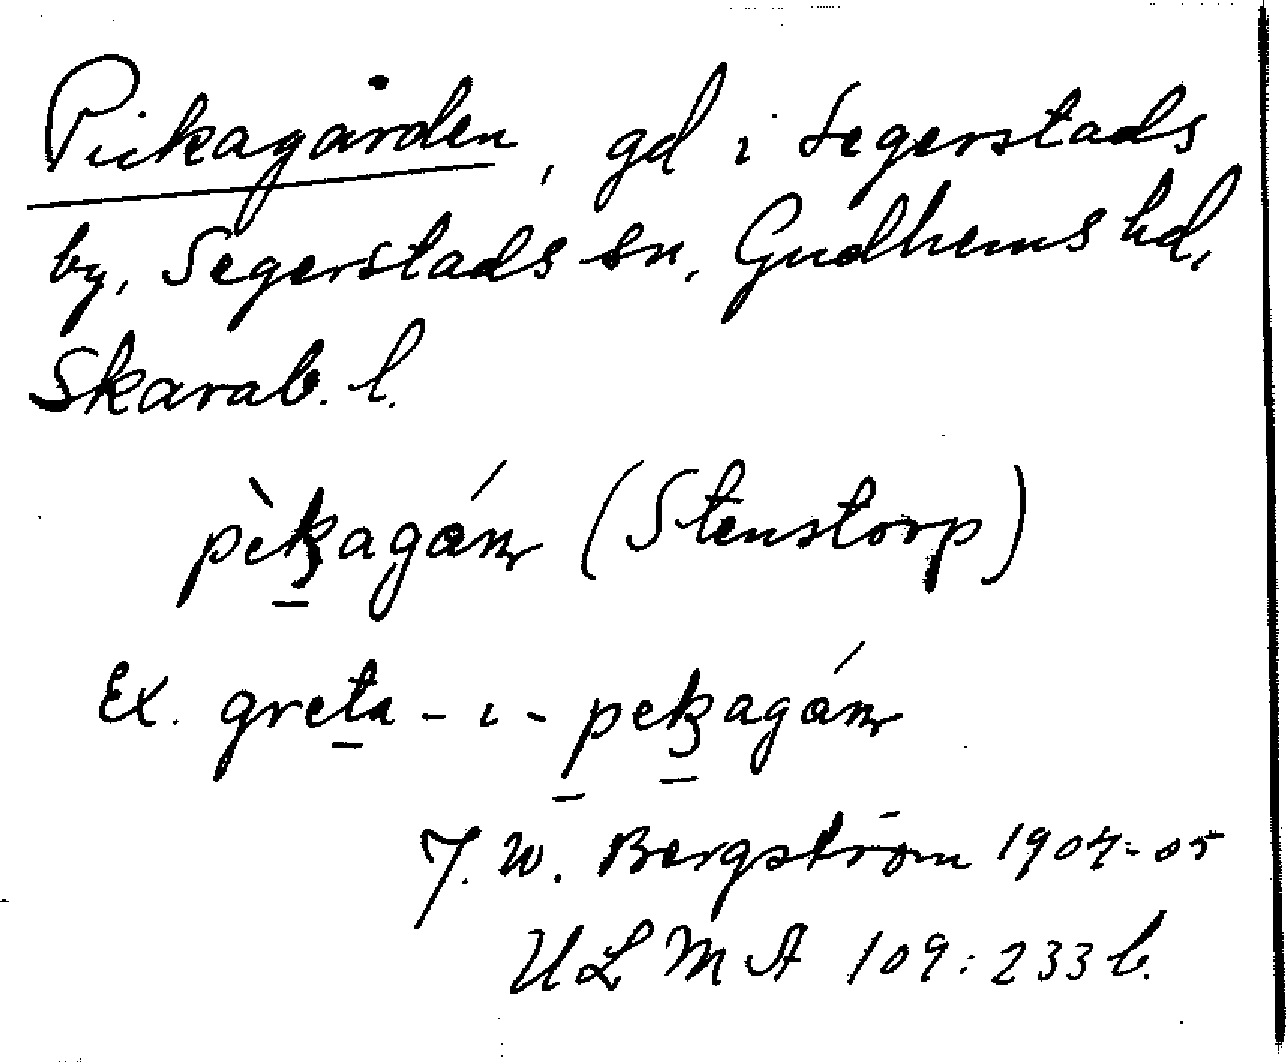 Pickagården, gd i Segerstads
by, Segerstads sn, Gudhems hd,
Skarab. l.
pèkagán (Stenstorp)
Ex. greta - ı - pekagán
J. W. Bergström 1904-05
ULMA 109:233 b.